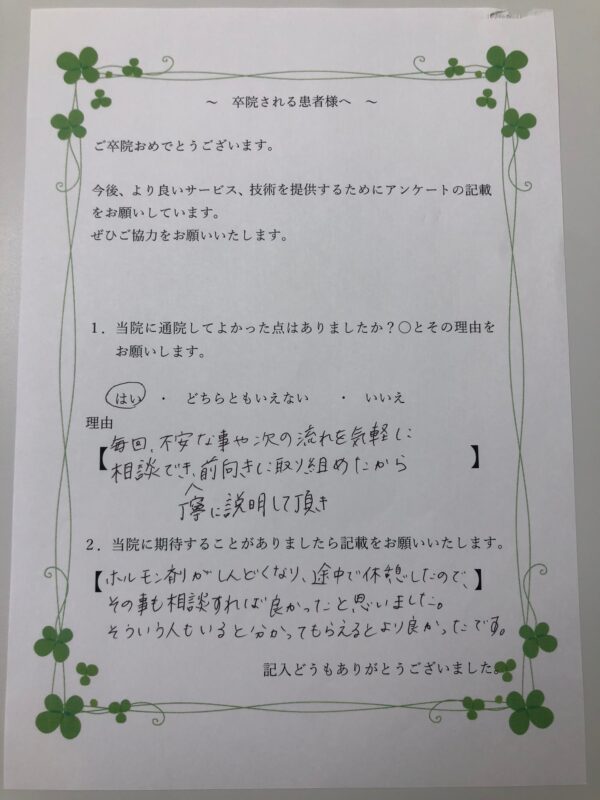 ～ 卒院される患者様へ ～
ご卒院おめでとうございます。
今後、より良いサービス、技術を提供するためにアンケートの記載
をお願いしています。
ぜひご協力をお願いいたします。
1．当院に通院してよかった点はありましたか？〇とその理由を
お願いします。
はい ・ どちらともいえない ・ いいえ
理由
【毎回、不安な事や次の流れを気軽に
相談でき、前向きに取り組めたから】
丁寧に説明して頂き
2．当院に期待することがありましたら記載をお願いいたします。
【ホルモン剤がしんどくなり、途中で休憩したので、】
その事も相談すれば良かったと思いました。
そういう人もいると分かってもらえるとより良かったです。
記入どうもありがとうございました。